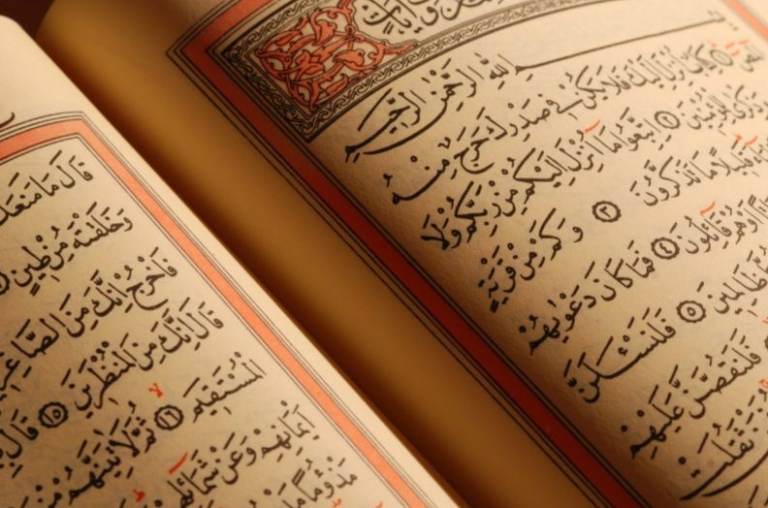 اللهِ الرَّحْمٰنِ الرَّحِيمِ
كِتَابٌ اُنْزِلَ اِلَيْكَ فَلَا يَكُنْ فِي صَدْرِكَ حَرَجٌ مِنْهُ
وَذِكْرٰى لِلْمُؤْمِنِينَ ٢ اِتَّبِعُوا مَٓا اُنْزِلَ اِلَيْكُمْ مِنْ رَبِّكُمْ وَلَا
قَلِيلًا مَا تَذَكَّرُونَ ٣ وَكَمْ مِنْ قَرْيَةٍ
اَوْ هُمْ قَٓائِلُونَ ٤ فَمَا كَانَ دَعْوٰيهُمْ
ظَالِمِينَ ٥ فَلَنَسْـَٔلَنَّ
فَلَنَقُصَّنَّ عَلَيْهِمْ
ثَقُلَتْ
قَالَ مَا مَنَعَكَ
وَخَلَقْتَهُ مِنْ طِينٍ
فَاخْرُجْ اِنَّكَ مِنَ الصَّاغِرِينَ
قَالَ اِنَّكَ مِنَ الْمُنْظَرِينَ ١٥ قَالَ
الْمُسْتَقِيمَ ١٦ ثُمَّ لَاٰتِيَنَّهُمْ مِنْ
اَيْمَانِهِمْ وَعَنْ شَمَٓائِلِهِمْ
مَذْؤُمًا